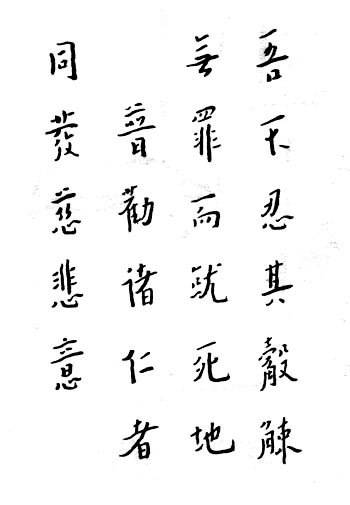 吾不忍其觳觫
無罪而就死地
普勸諸仁者
同發慈悲意